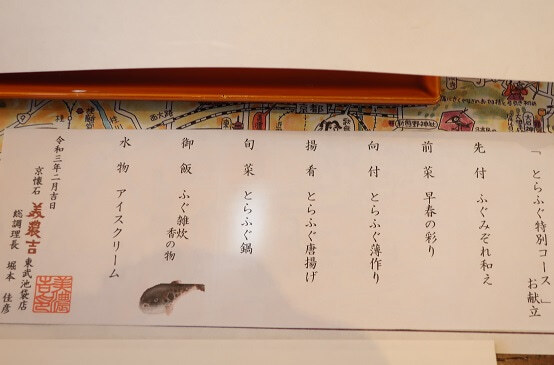 「とらふぐ特別コース」
お献立
先付 ふぐみぞれ和え
前菜 早春の彩り
向付 とらふぐ薄作り
揚肴 とらふぐ唐揚げ
旬菜 とらふぐ鍋
御飯 ふぐ雑炊
香の物
水物 アイスクリーム
令和三年二月吉日
京懐石 美濃吉 東武池袋店
総調理長 堀本 佳彦
美濃吉